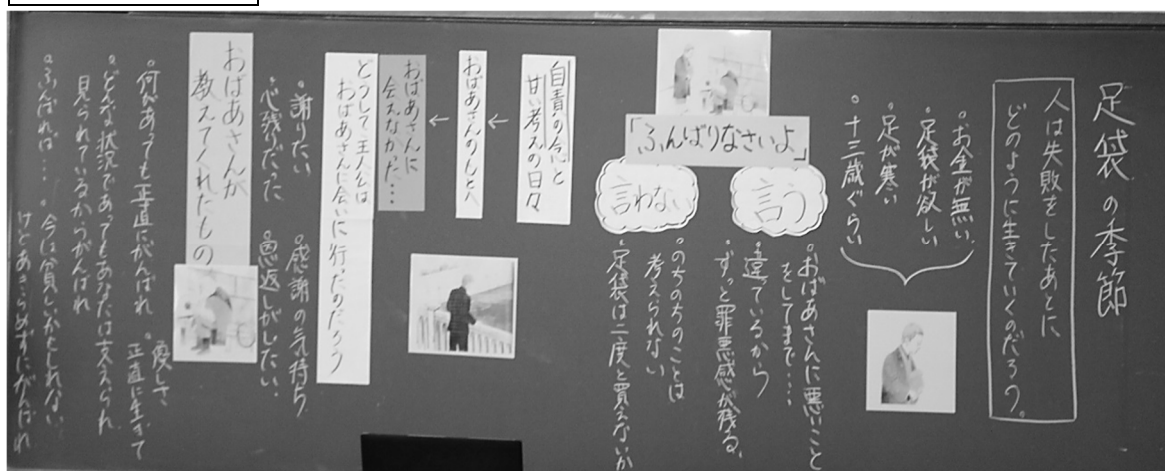 足袋の季節
人は失敗をしたあとに
どのように生きていくのだろう。
・お金が無い
・足袋が欲しい
・足が寒い
・十三歳ぐらい
「ふんばりなさいよ」
言う
・おばあさんに悪いこと
をしてまで・・・
・違っているから
ずっと罪悪感が残る、
言わない
・のちのちのことは
考えられない
・足袋は二度と買えないか
自責の念と
甘い考えの日々
←
おばあさんのもとへ
←
おばあさんに
会えなかった…
どうして主人公は
おばあさんに会いに行ったのだろう
・謝りたい
・感謝の気持ち
・心残りだった
・恩返しがしたい
おばあさんが
教えてくれたもの
・優しさ
・何があっても正直にがんばれ
・正直に生きて
・どんな状況であってもあなたは支えられ
見られているからがんばれ
・ふんばれば…
・今は貧しいかもしれない
けどあきらめずにがんばれ